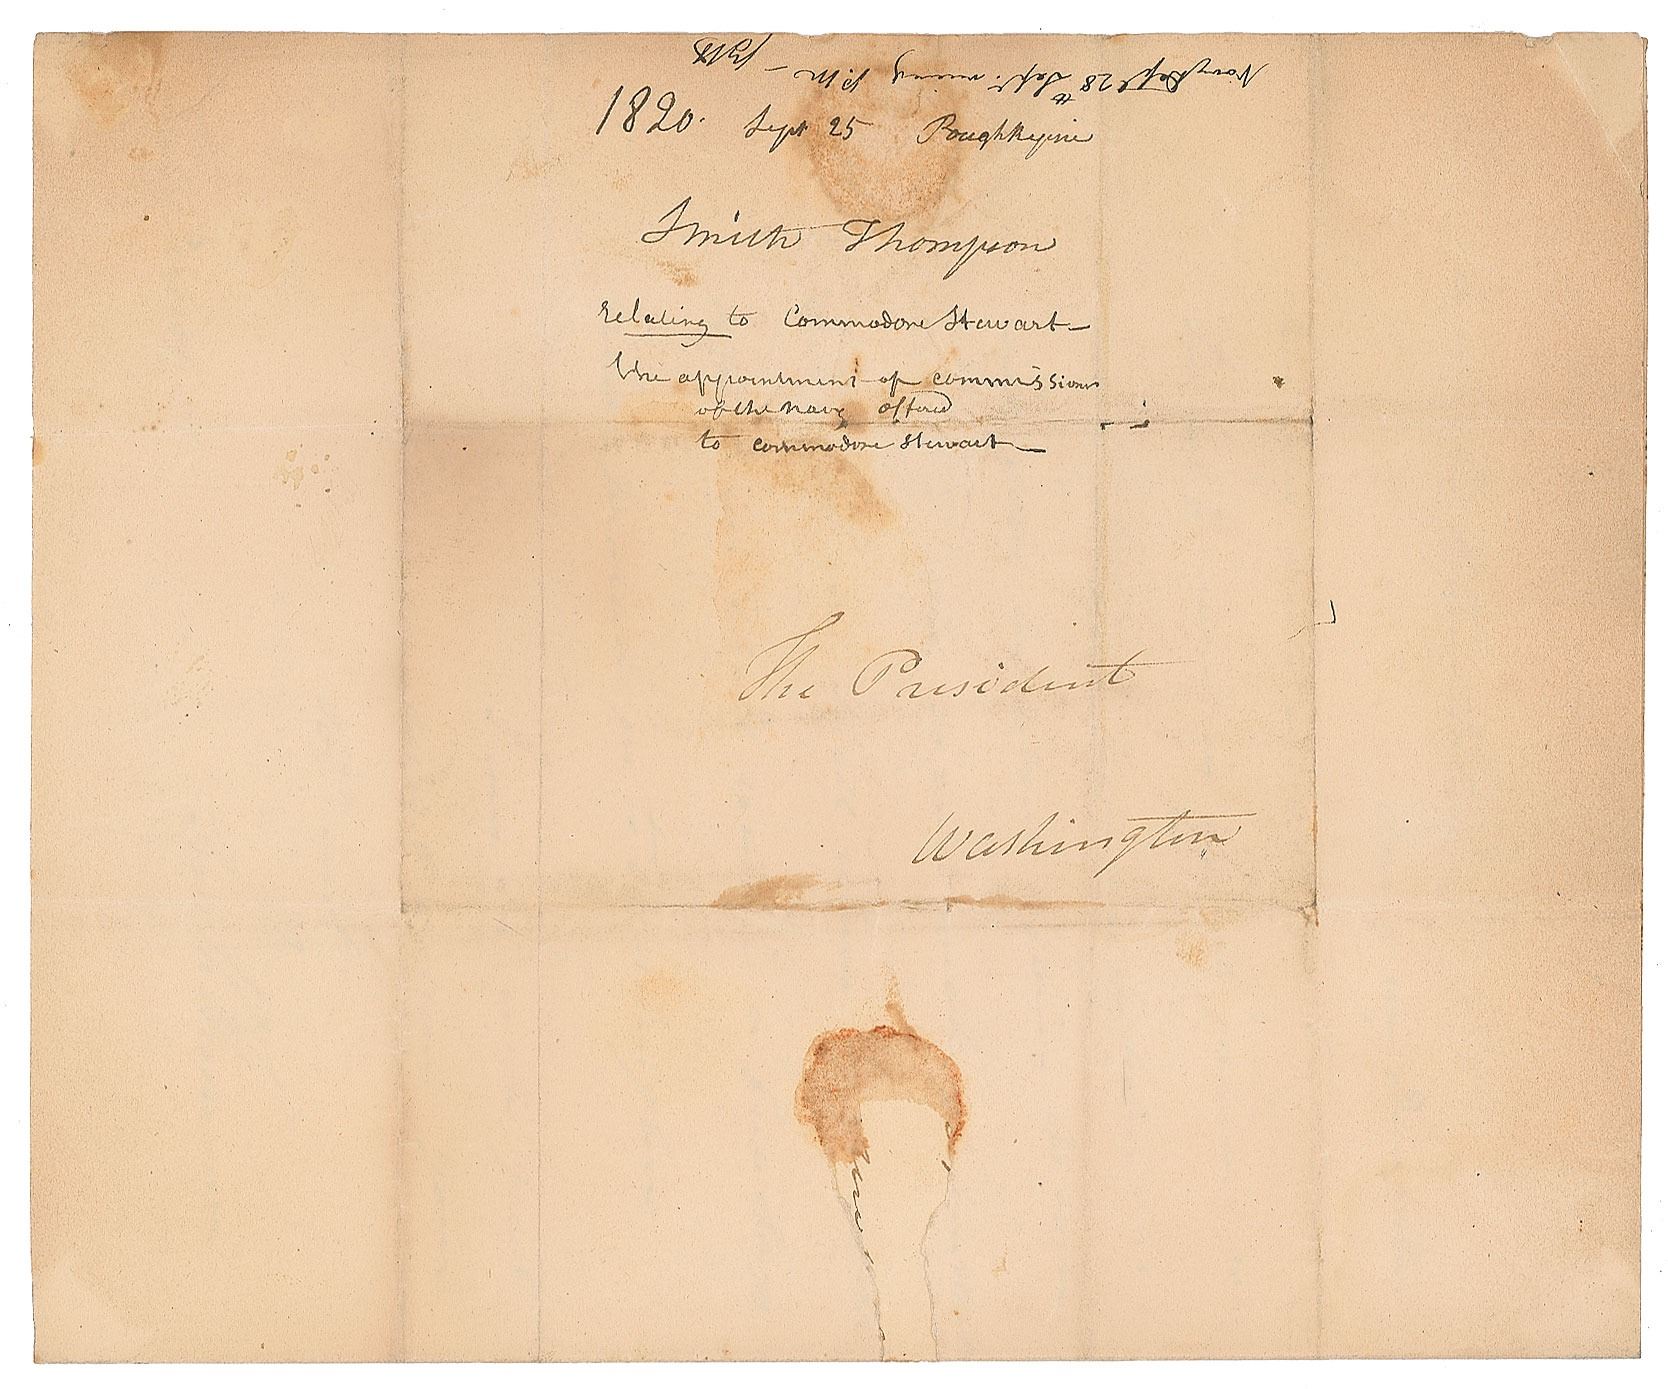 Navy Dept 28th Sept.
1820. Sept 25 Poughkepsie
Smith Thompson
relating to Commodore Stewart—
the appointment of commissioner
of the navy offered
to commodore Stewart—
The President
Washington